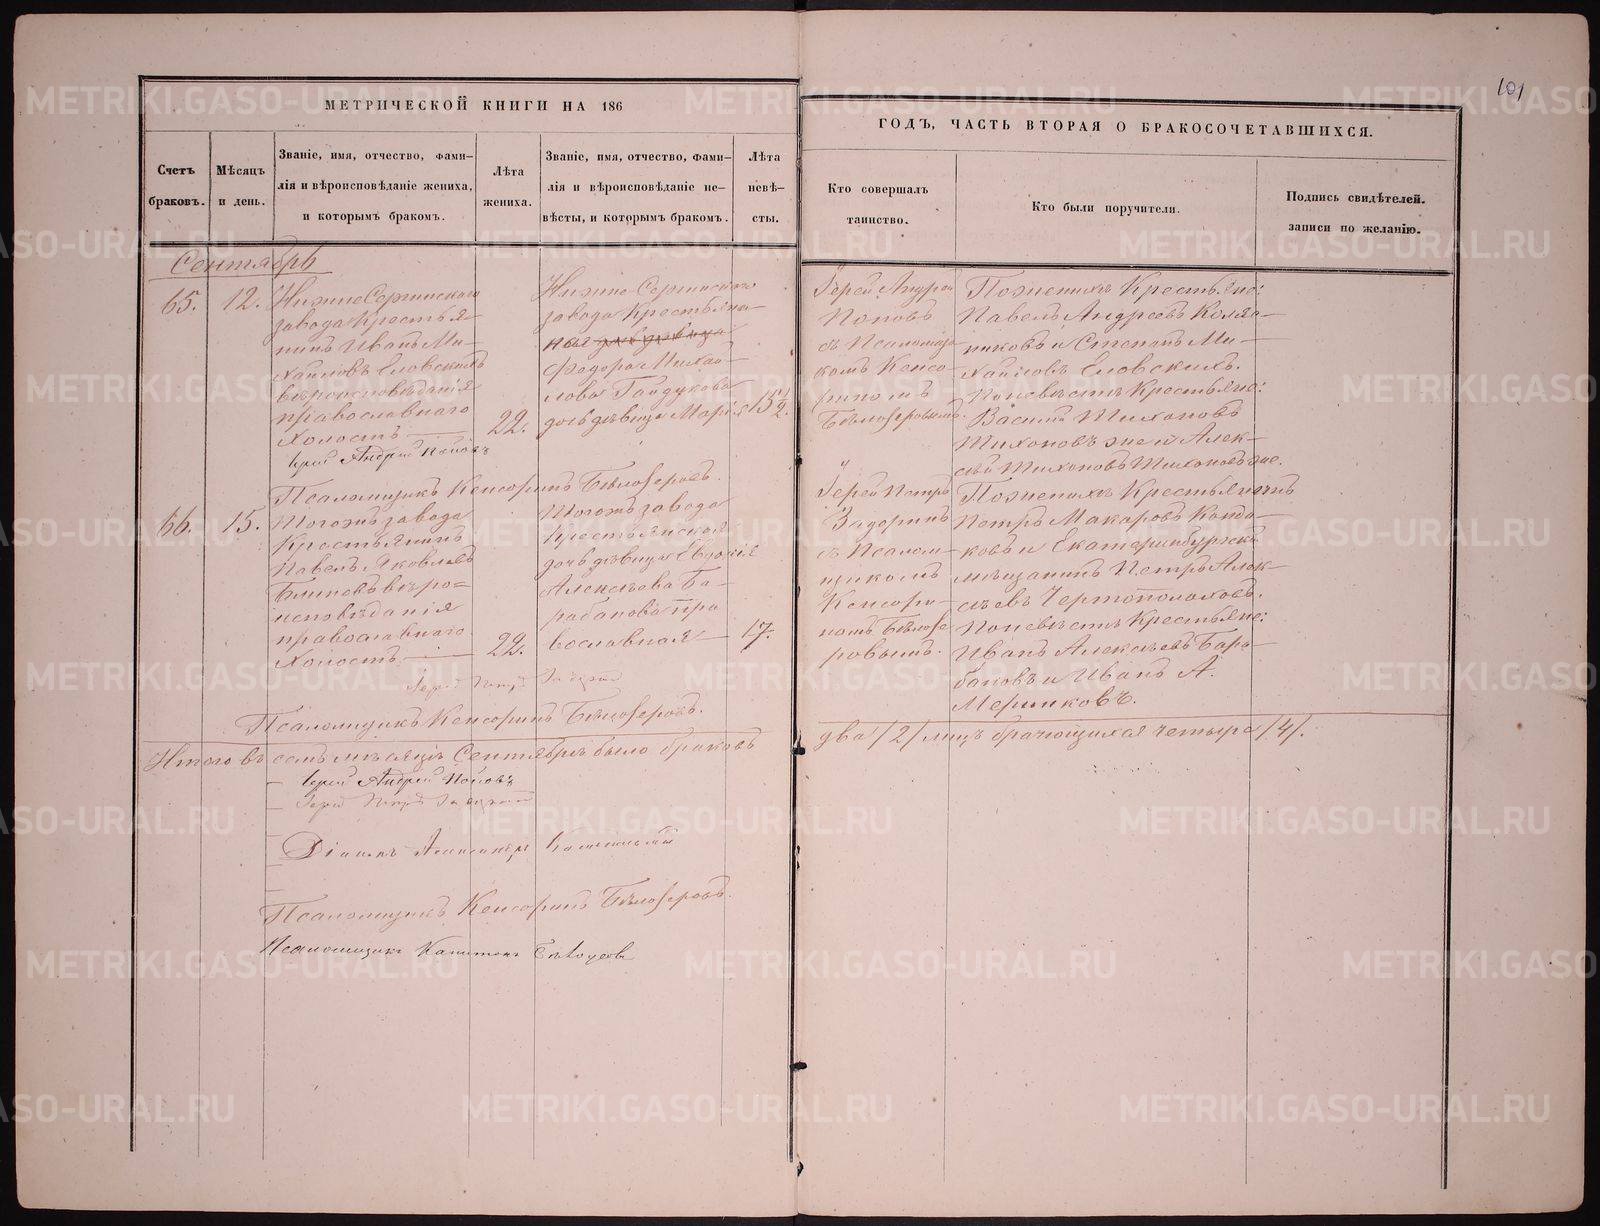 101
МЕТРИЧЕСКОЙ КНИГИ НА 186
ГОДЪ, ЧАСТЬ ВТОРАЯ О БРАКОСОЧЕТАВШИХСЯ.
Счетъ
браковъ.
Мѣсяцъ
и день.
Званіе, имя, отчество, фами-
лія и вѣроисповѣданіе жениха,
и которымъ бракомъ.
Лѣта
жениха.
Званіе, имя, отчество, фами-
лія и вѣроисповѣданіе не-
вѣсты, и которымъ бракомъ.
Лѣта
невѣ-
сты.
Кто совершалъ
таинство.
Кто были поручители.
Подпись свидѣтелей.
записи по желанію.
Сентябрь
65.
12.
Нижне Сергинскаго
завода Крестья
нинъ Иванъ Ми-
хайловъ Еловскихъ
вѣроисповѣданія
православнаго
Холостъ
22.
Нижне Сергинскаго
завода Крестьяни-
на
Федора Михай-
лова Гайдукова
дочь дѣвица Марія
15 1/2.
Іерей Андрей
Поповъ
съ Псаломщи
комъ Кенсо-
риномъ
Бѣлозеровымъ.
По женихѣ Крестьяне:
Павелъ Андреевъ
никовъ и Степанъ Ми-
хайловъ Еловскихъ.
По невѣстѣ Крестьяне:
Василій Тихоновъ
Тихоновъ же и Алек-
сѣй Тихоновъ Тихоновъ же.
Іерей Андрей Поповъ
Псаломщикъ Кенсоринъ Бѣлозеровъ.
66.
15.
Тогожъ завода
Крестьянинъ
Павелъ Яковлевъ
Блиновъ вѣро-
исповѣданія
православнаго
Холостъ
22.
Тогожъ завода
крестьянская
дочь дѣвица Евдокія
Алексѣева Ба-
рабанова пра
вославная
17.
Іерей Петръ
Задоринъ
съ Псалом-
щикомъ
Кенсори-
номъ Бѣлозе
ровымъ.
По женихѣ Крестьянинъ
Петръ Макаровъ Конда-
ковъ и Екатеринбургскій
мѣщанинъ Петръ Алек-
сѣевъ Чертополоховъ.
По невѣстѣ Крестьяне:
Иванъ Алексѣевъ Бара-
бановъ и Иванъ А.
Мериновъ.
Іерей Петръ Задоринъ
Псаломщикъ Кенсоринъ Бѣлозеровъ.
Итого въ семъ мѣсяцѣ Сентябрѣ было браковъ
два /2/ лицъ брачющихся четыре /4/.
Іерей Андрей Поповъ
Іерей Петръ Задоринъ
Діаконъ Александръ
Псаломщикъ Кенсоринъ Бѣлозеровъ.
Псаломщикъ Капитонъ
METRIKI.GASO-URAL.RU